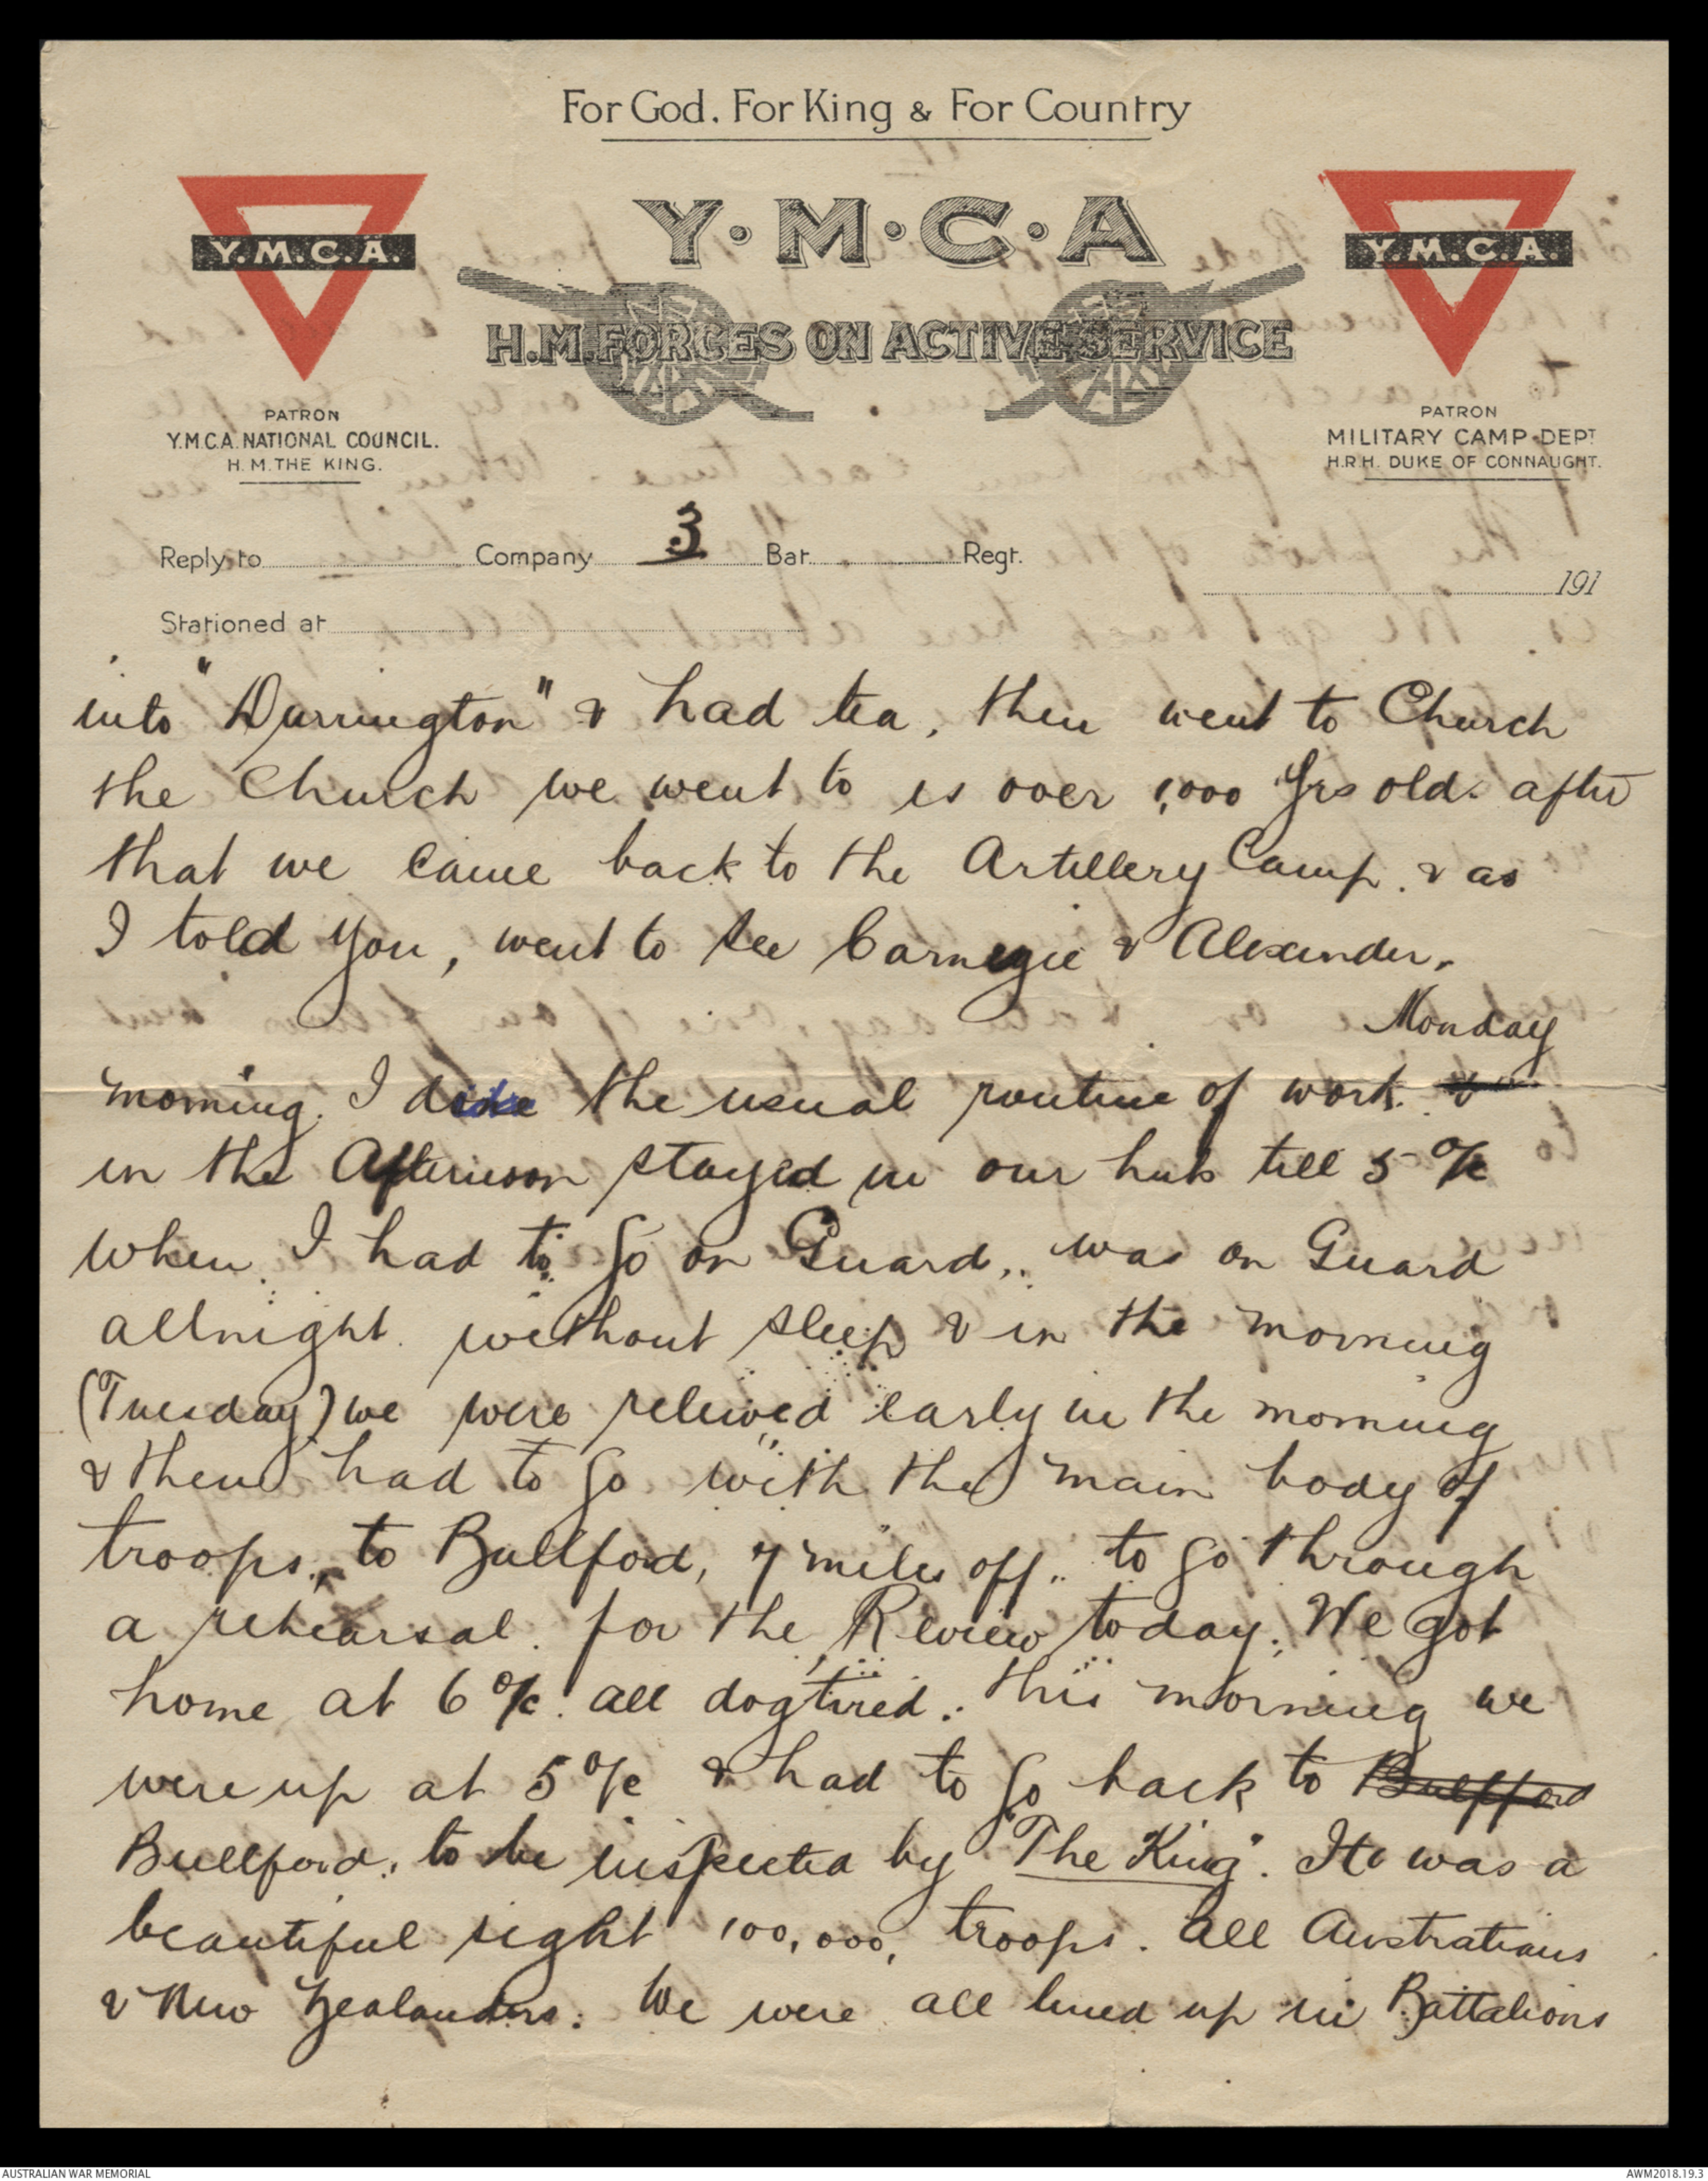 For God. For King & For Country
Y.M.C.A.
Y·M·C·A
Y.M.C.A.
H.M. FORCES ON ACTIVE SERVICE
PATRON
Y.M.C.A. NATIONAL COUNCIL.
H.M. THE KING.
PATRON
MILITARY CAMP DEPT
H.R.H. DUKE OF CONNAUGHT.
Reply to Company 3 Bat. Regt.
191
Stationed at
into "Durrington" & had tea, then went to Church
the Church we went to is over 1,000 Yrs old. after
that we came back to the Artillery Camp. & as
I told you, went to see Carnegie & Alexander.
Monday
morning. I did the usual routine of work. &
in the Afternoon stayed in our huts till 5 o/c
when I had to go on Guard,. was on Guard
allnight. without sleep & in the morning
(Tuesday) we were releived early in the morning
& then had to go with the main body of
troops., to Bullford, 7 miles off.. to go through
a rehearsal. for the Review today. We got
home at 6 o/c. all dogtired. this morning we
were up at 5 o/c & had to go back to Bullford
Bullford. to be inspected by "The King". It was a
beautiful sight 100,000, troops. all Australians
& New Zealanders. We were all lined up in Battalions
AUSTRALIAN WAR MEMORIAL
AWM2018.19.3